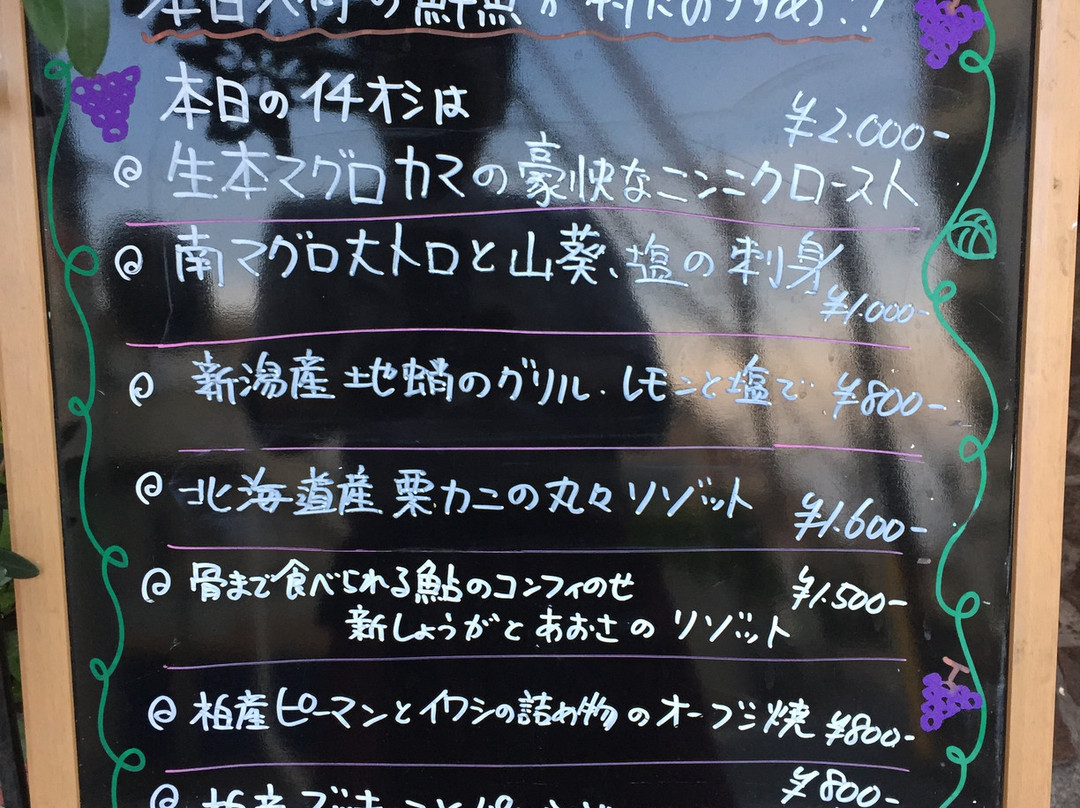 本日入荷の鮮魚が特におすすめ!!
本日のイチオシは
¥2.000-
@ 生本マグロカマの豪快なニンニクロースト
@ 南マグロ大トロと山葵、塩の刺身
¥1.000-
@ 新潟産 地蛸のグリル.レモンと塩で ¥800-
@ 北海道産 栗カニの丸々リゾット ¥1.600-
@ 骨まで食べられる鮎のコンフィのせ ¥1.500-
新しょうがとあおさのリゾット
@ 柏産ピーマンとイワシの詰め物のオーブン焼 ¥800-
¥800-
@ 柏産